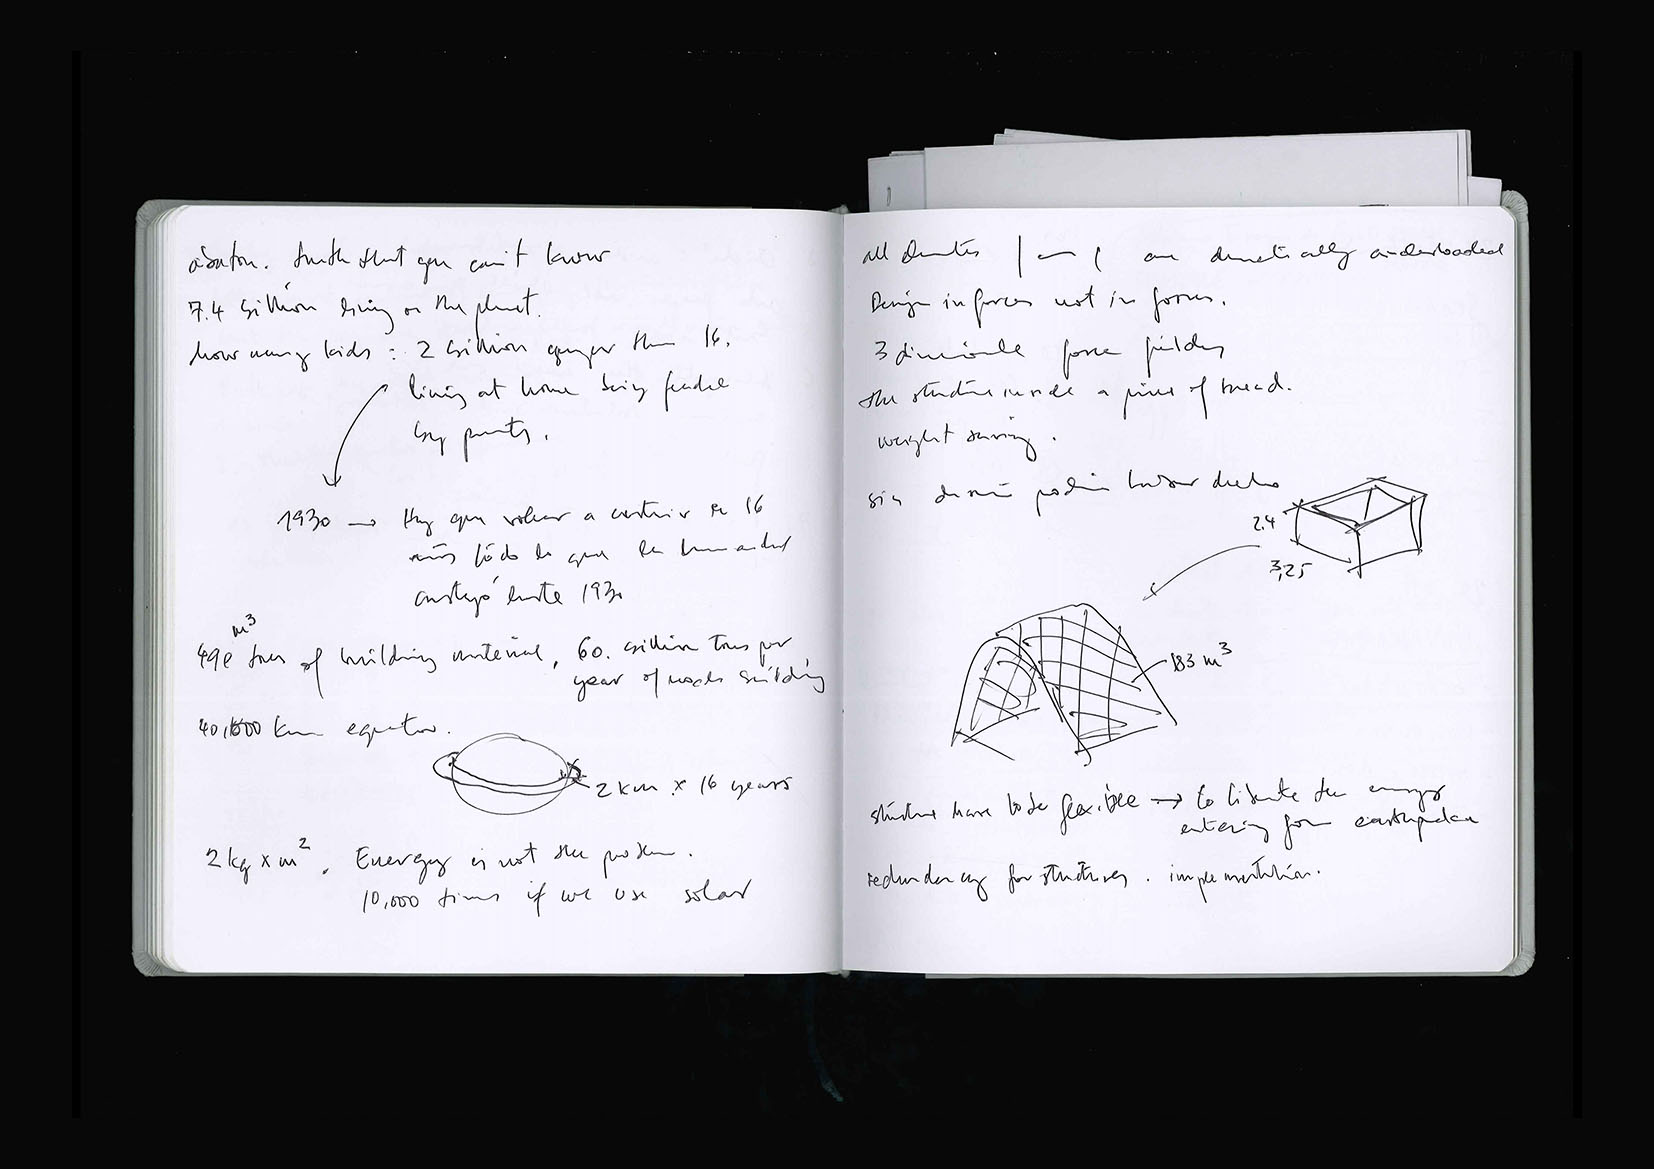 truth that you can't know
7.4 billion living on the planet.
how many kids : 2 billion younger than 16.
living at home being
by parents.
1930 → Hay que volver a construir en 16
años todo lo que la humanidad
construyó hasta 1930
m³
49e tons of building material, 60. billion tons per
year of needs building
40,000 km equator.
2 km × 16 years
2 kg × m². Energy is not the problem.
10,000 times if we use solar
all elements are drastically
Design in forces not in forms.
3 force
the structure inside a piece of bread.
weight saving.
2.4
3,25
183 m³
structures have to be flexible → to liberate the energy
entering from earthquakes
redundancy for structures. implementation.